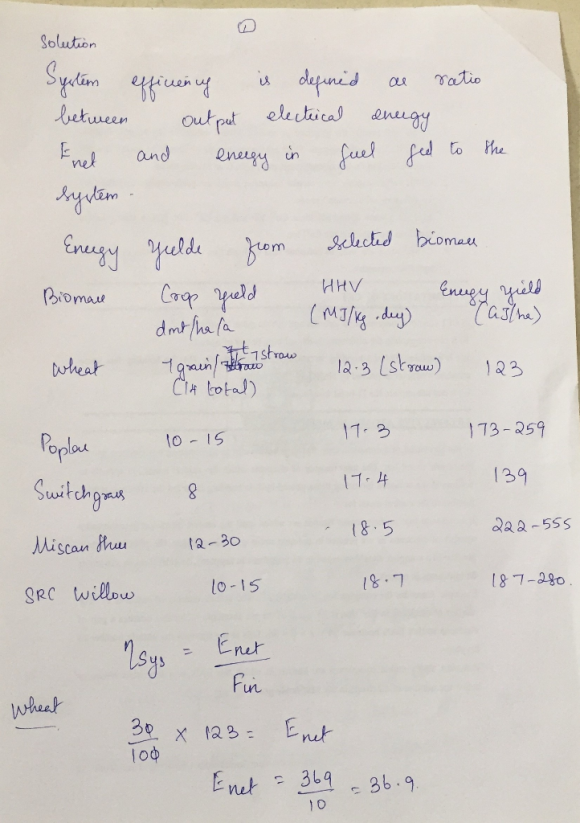 ①
Solution
System efficiency is defined as ratio
between output electrical energy
Enet and energy in fuel fed to the
system.
Energy yields from selected biomass
Biomass Crop yield HHV Energy yield
dmt/ha/a (MJ/kg.dry) (GJ/ha)
Wheat 7 grain/7 straw 12.3 (straw) 123
(14 total)
Poplar 10-15 17.3 173-259
Switchgrass 8 17.4 139
Miscanthus 12-30 18.5 222-555
SRC Willow 10-15 18.7 187-280.
ηsys = Enet
Fin
Wheat
30/100 × 123 = Enet
Enet = 369/10 = 36.9.